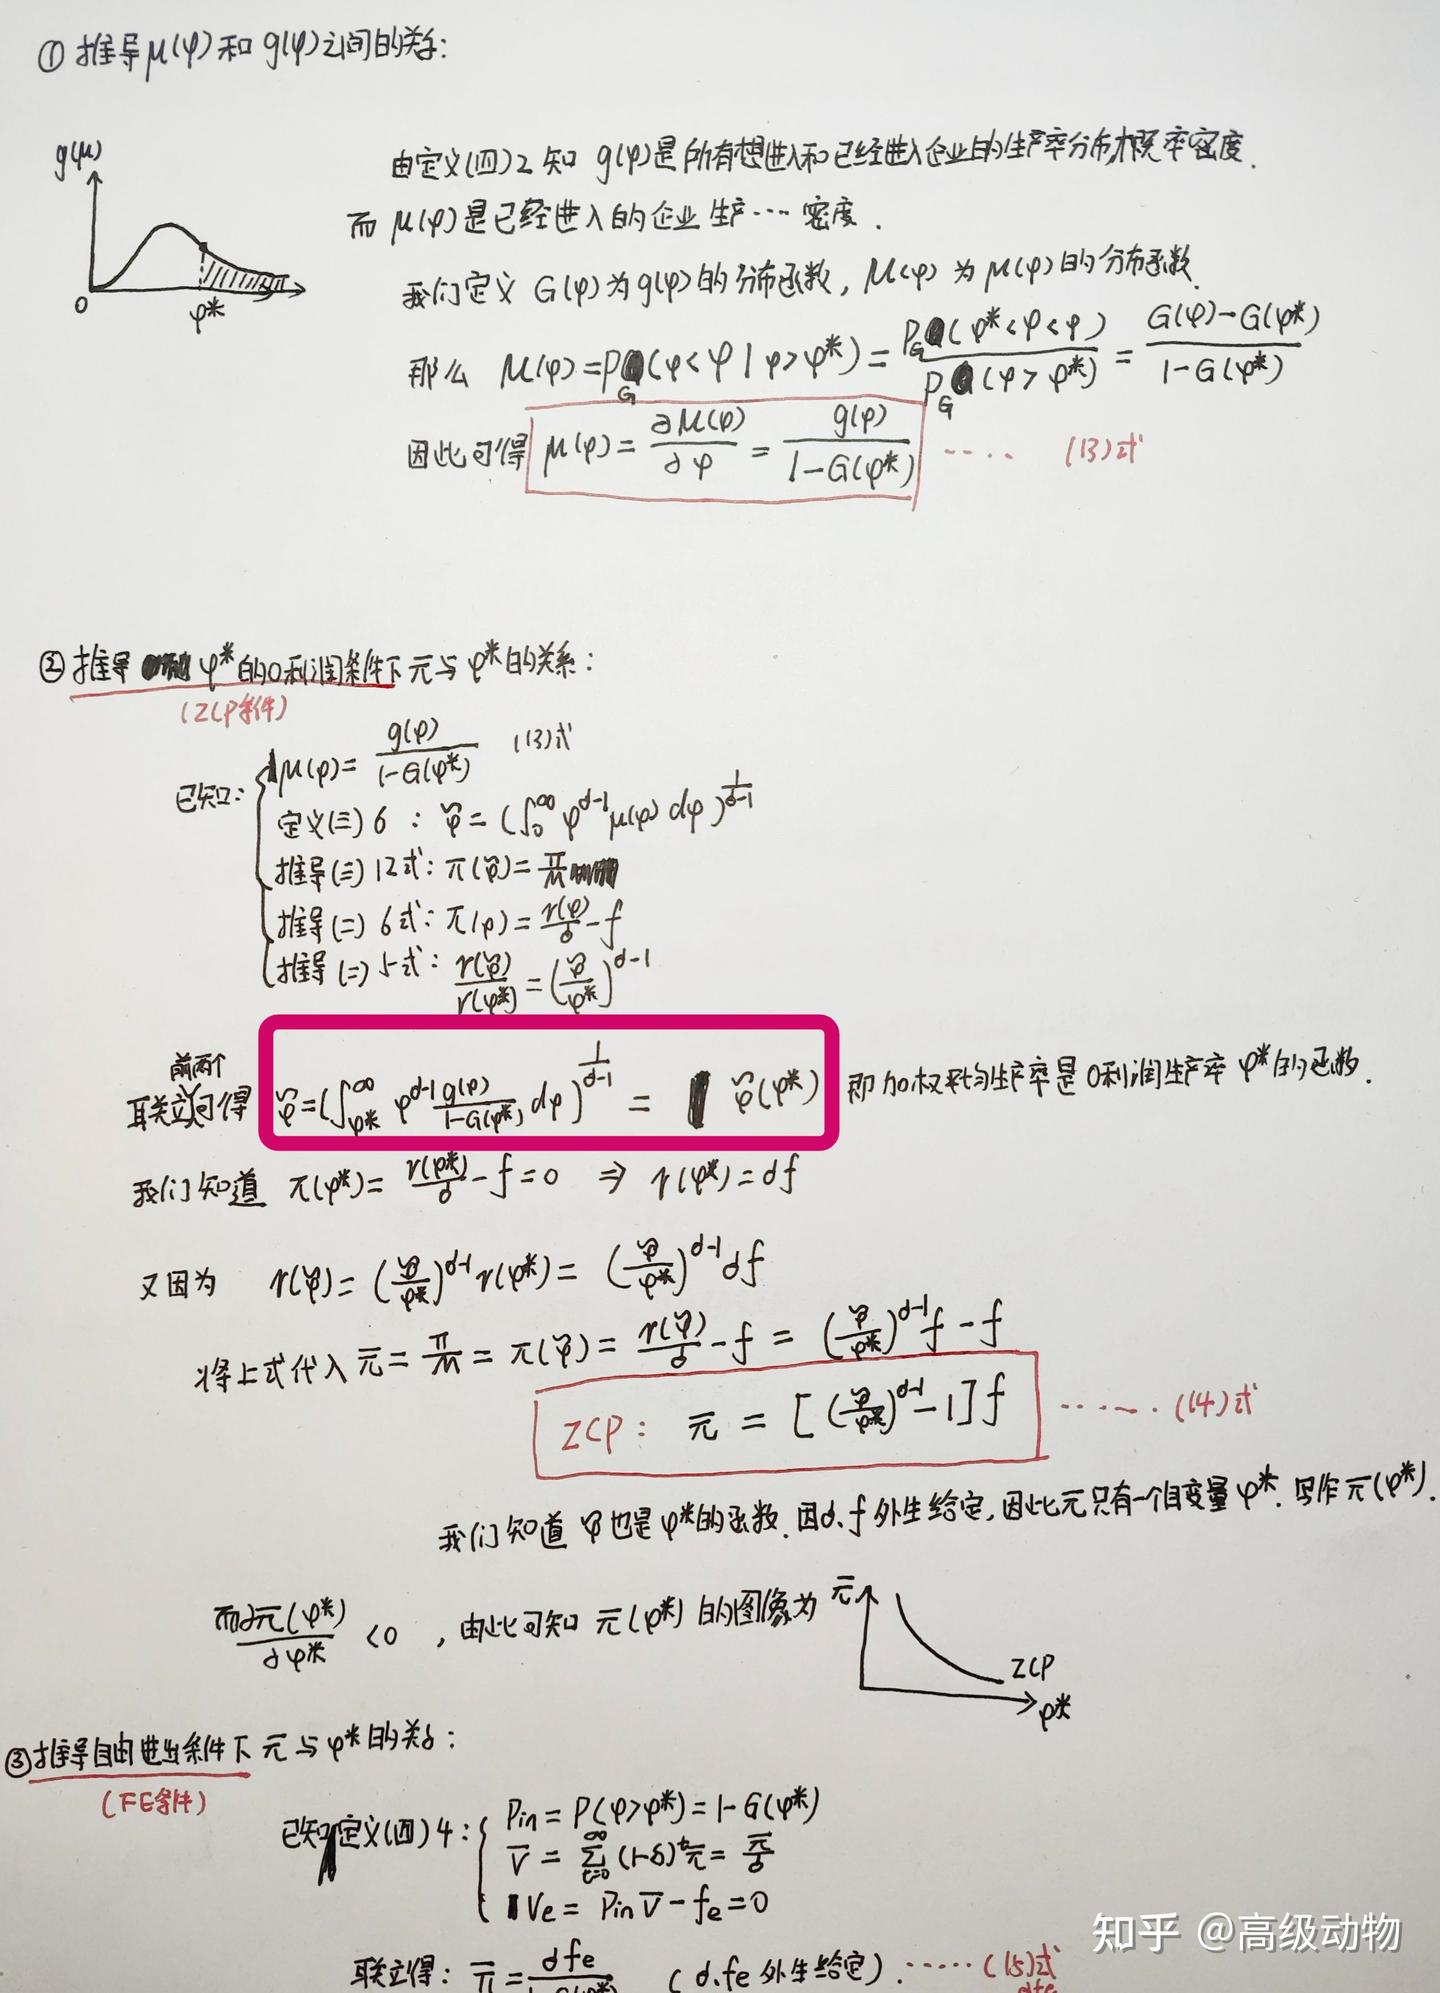 ① 推导μ(φ)和g(φ)之间的关系:
g(μ)
0
φ*
由定义(四)2知 g(φ)是所有想进入和已经进入企业的生产率分布概率密度.
而 μ(φ)是已经进入的企业生产…密度.
我们定义 G(φ)为g(φ)的分布函数, M(φ)为μ(φ)的分布函数.
那么 M(φ)=P_G(φ<φ|φ>φ*)=P_G(φ*<φ<φ)/P_G(φ>φ*)=(G(φ)-G(φ*))/(1-G(φ*))
因此可得 μ(φ)=∂M(φ)/∂φ=g(φ)/(1-G(φ*)) ···· (13)式
② 推导 φ*的0利润条件下π̄与φ*的关系:
(ZCP条件)
已知:
μ(φ)=g(φ)/(1-G(φ*)) (13)式
定义(三)6: φ̃=(∫₀^∞ φ^(σ-1) μ(φ) dφ)^(1/(σ-1))
推导(三)12式: π(φ̃)=Π/M
推导(二)6式: π(φ)=r(φ)/σ-f
推导(二)5式: r(φ̃)/r(φ*)=(φ̃/φ*)^(σ-1)
前两个
联立可得 φ̃=(∫_φ*^∞ φ^(σ-1) g(φ)/(1-G(φ*)) dφ)^(1/(σ-1)) = φ̃(φ*) 即加权平均生产率是0利润生产率φ*的函数.
我们知道 π(φ*)=r(φ*)/σ-f=0 ⇒ r(φ*)=σf
又因为 r(φ̃)=(φ̃/φ*)^(σ-1) r(φ*)=(φ̃/φ*)^(σ-1) σf
将上式代入 π̄=Π/M=π(φ̃)=r(φ̃)/σ-f=(φ̃/φ*)^(σ-1) f-f
ZCP: π̄=[(φ̃/φ*)^(σ-1)-1]f ····· (14)式
我们知道 φ̃也是φ*的函数.因σ、f外生给定,因此π̄只有一个自变量φ*.写作π̄(φ*).
而∂π̄(φ*)/∂φ*<0 ,由此可知 π̄(φ*)的图像为
π̄
ZCP
φ*
③推导自由进出条件下 π̄与φ*的关系:
(FE条件)
已知定义(四)4:
Pin=P(φ>φ*)=1-G(φ*)
V̄=∑_(t=0)^∞ (1-δ)^t π̄=π̄/δ
Ve=Pin V̄-fe=0
联立得: π̄=δfe/(1-G(φ*)) (δ、fe外生给定). ····· (15)式
δfe
知乎 @高级动物